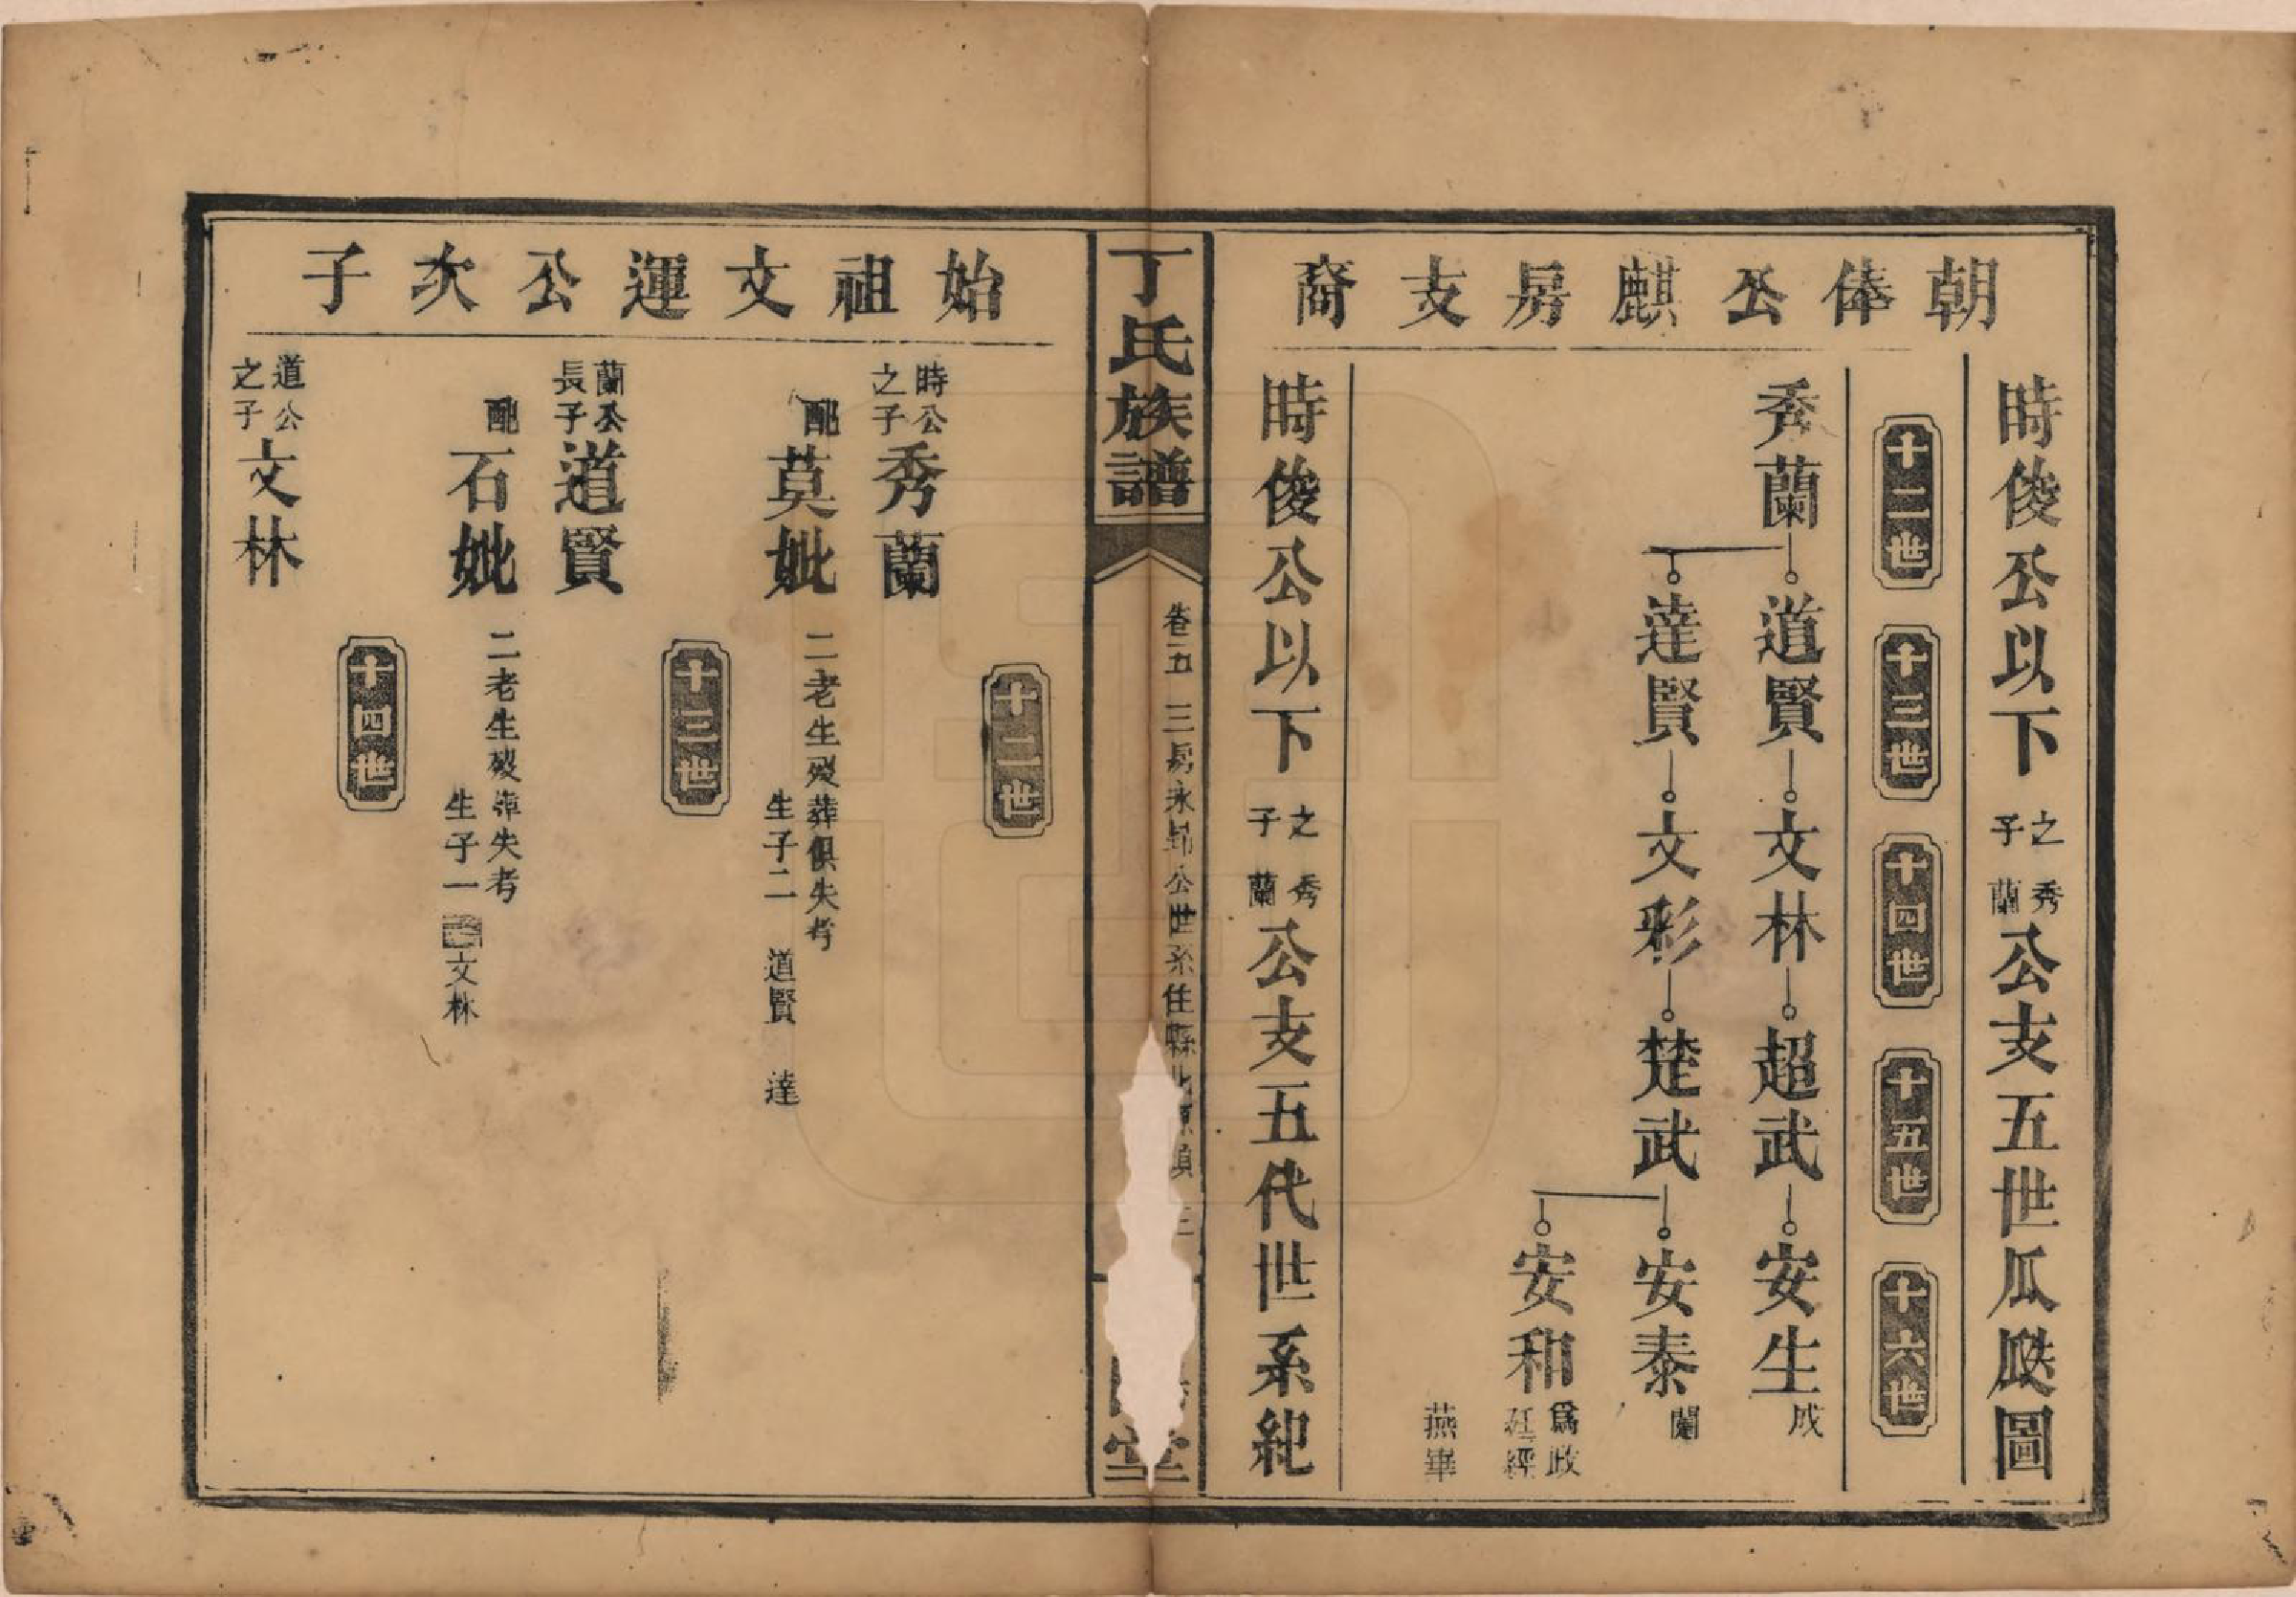 朝俸公麒房支裔
時俊公以下之子秀蘭公支五世瓜瓞圖
十二世 十三世 十四世 十五世 十六世
秀蘭 道賢 文林 超武 安生 成
達賢 文彩 楚武 安泰 蘭
安和 爲政 廷經
燕 畢
時俊公以下之子秀蘭公支五代世系紀
丁氏族譜
卷五 三房永昻公世系住縣
堂
始祖文運公次子
十二世
時公之子秀蘭
配莫妣 二老生歿葬俱失考
生子二 道賢 達
十三世
蘭公長子道賢
配石妣 二老生歿葬失考
生子一 文林
十四世
道公之子文林